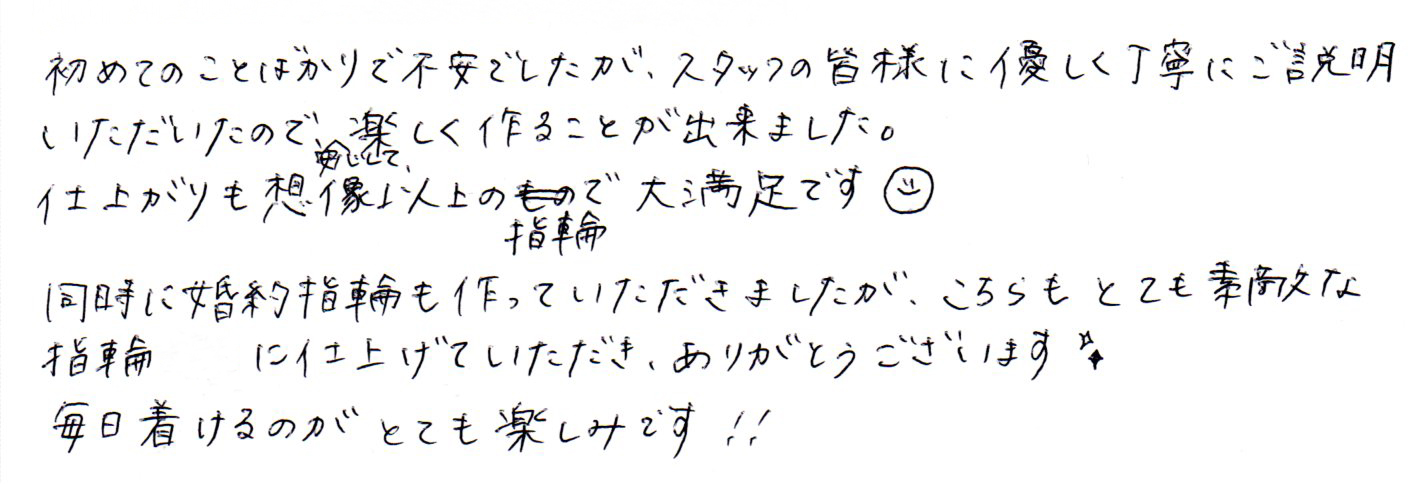 初めてのことばかりで不安でしたが、スタッフの皆様に優しく丁寧にご説明
いただいたので、安心して、楽しく作ることが出来ました。
仕上がりも想像以上の指輪で大満足です
同時に婚約指輪も作っていただきましたが、こちらもとても素敵な
指輪 に仕上げていただき、ありがとうございます
毎日着けるのがとても楽しみです!!